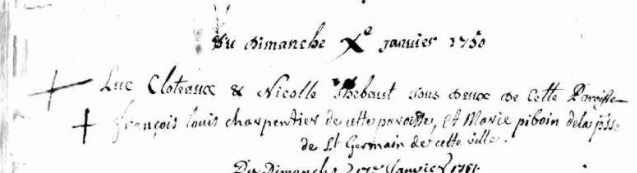 Du Dimanche Xe janvier 1750
Luc Cloteaux & Nicolle Thebaut tous deux de Cette Paroisse
françois Louis charpentier de cette paroisse, et Marie piboin de la psse
de St Germain de cette ville.
Du Dimanche 17e Janvier 1751.